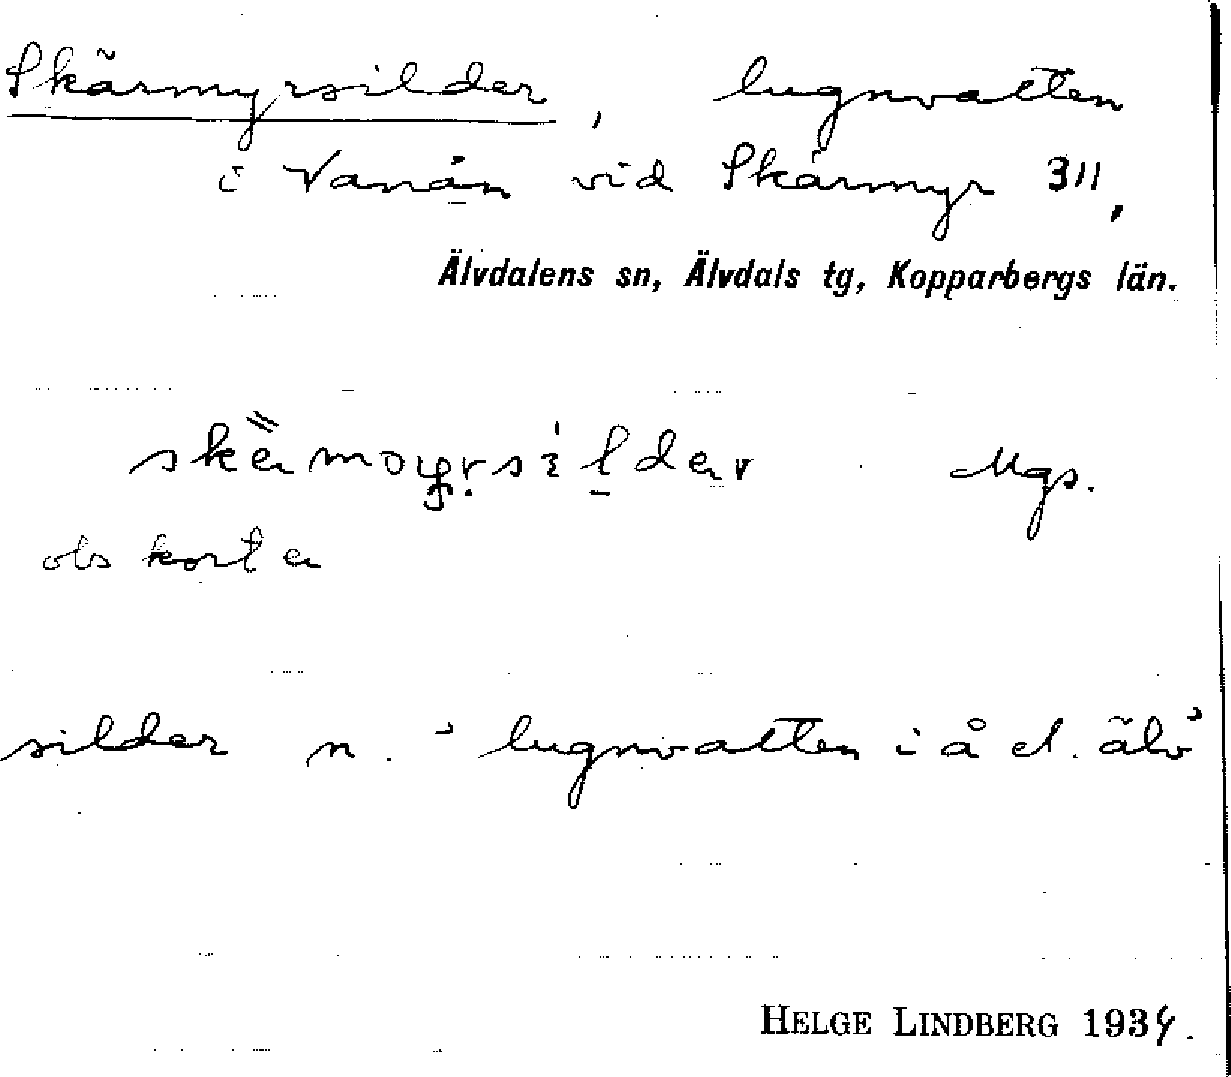 Skärmyrsilder, lugnvatten
i Vanån vid Skärmyr 311,
Älvdalens sn, Älvdals tg, Kopparbergs län.
Mgs.
obs korta
silder n. "lugnvatten i å el. älv"
HELGE LINDBERG 1934.